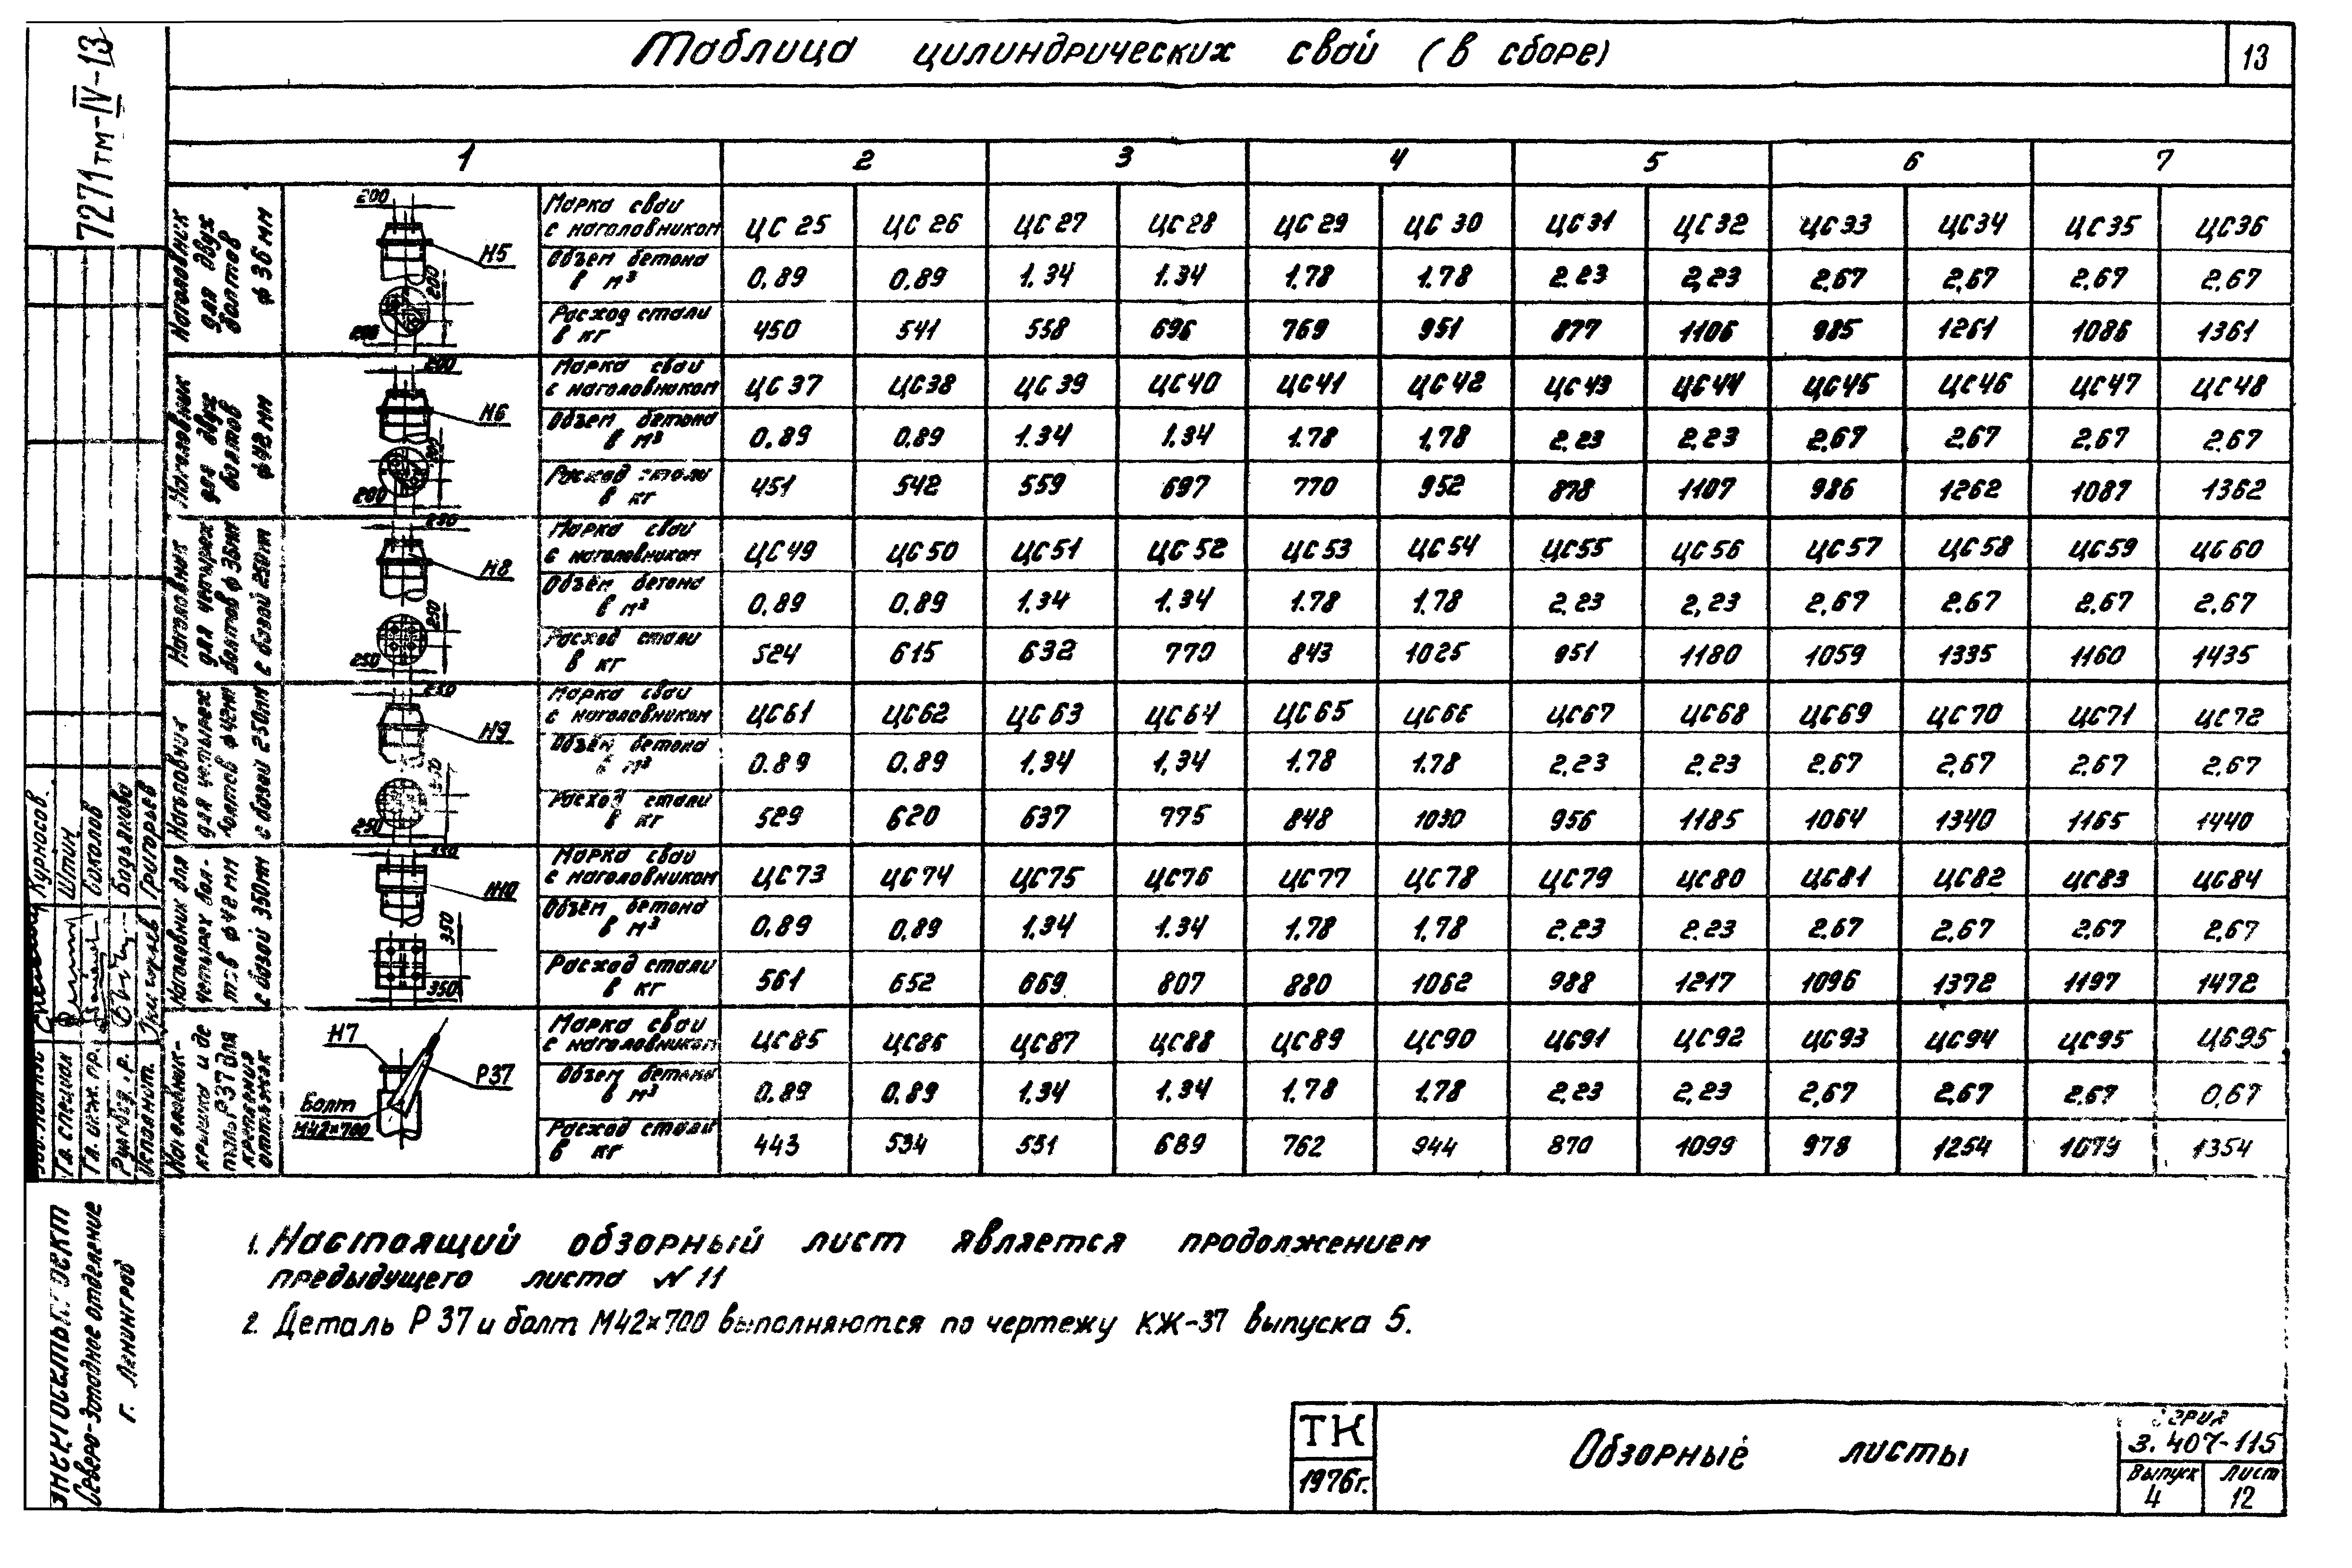 Таблица цилиндрических свай (в сборе)
13
7271тм-IV-13
1 2 3 4 5 6 7
Наголовник для двух болтов ф 36 мм
200
Н5
200
Марка сваи с наголовником ЦС 25 ЦС 26 ЦС 27 ЦС28 ЦС 29 ЦС 30 ЦС31 ЦС32 ЦС33 ЦС34 ЦС35 ЦС36
Объем бетона в м³ 0.89 0.89 1.34 1.34 1.78 1.78 2.23 2,23 2,67 2,67 2,67 2,67
Расход стали в кг 450 541 558 696 769 951 877 1106 985 1261 1086 1361
Наголовник для двух болтов ф42 мм
200
Н6
200
Марка сваи с наголовником ЦС 37 ЦС38 ЦС 39 ЦС40 ЦС41 ЦС 42 ЦС43 ЦС44 ЦС45 ЦС46 ЦС47 ЦС48
Объем бетона в м³ 0.89 0.89 1.34 1.34 1.78 1,78 2.23 2.23 2,67 2,67 2,67 2.67
Расход стали в кг 451 542 559 697 770 952 878 1107 986 1262 1087 1362
Наголовник для четырех болтов ф 36мм с базой 250мм
250
Н8
250
250
Марка сваи с наголовником ЦС49 ЦС 50 ЦС51 ЦС 52 ЦС 53 ЦС 54 ЦС55 ЦС 56 ЦС 57 ЦС 58 ЦС59 ЦС 60
Объём бетона в м³ 0,89 0,89 1.34 1.34 1.78 1,78 2,23 2,23 2,67 2.67 2,67 2.67
Расход стали в кг 524 615 632 770 843 1025 951 1180 1059 1335 1160 1435
Наголовник для четырех болтов ф 42мм с базой 250мм
250
Н9
250
Марка сваи с наголовником ЦС61 ЦС62 ЦС 63 ЦС64 ЦС 65 ЦС66 ЦС67 ЦС68 ЦС69 ЦС 70 ЦС71 ЦС72
Объём бетона в м³ 0.89 0.89 1,34 1,34 1.78 1.78 2,23 2.23 2.67 2,67 2.67 2,67
Расход стали в кг 529 620 637 775 848 1030 956 1185 1064 1340 1165 1440
Наголовник для четырех болтов ф 42 мм с базой 350мм
Н10
350
350
Марка сваи с наголовником ЦС73 ЦС74 ЦС75 ЦС76 ЦС77 ЦС78 ЦС79 ЦС80 ЦС81 ЦС82 ЦС83 ЦС84
Объём бетона в м³ 0,89 0.89 1,34 1.34 1,78 1,78 2.23 2.23 2,67 2,67 2,67 2,67
Расход стали в кг 561 652 669 807 880 1062 988 1217 1096 1372 1197 1472
Наголовник-крышка и деталь Р37 для крепления оттяжек
Н7
Р37
Болт
М42×700
Марка сваи с наголовником ЦС85 ЦС86 ЦС87 ЦС88 ЦС89 ЦС90 ЦС91 ЦС92 ЦС93 ЦС94 ЦС95 ЦС95
Объем бетона в м³ 0.89 0.89 1,34 1,34 1.78 1.78 2,23 2,23 2,67 2,67 2,67 0,67
Расход стали в кг 443 534 551 689 762 944 870 1099 978 1254 1079 1354
1. Настоящий обзорный лист является продолжением
предыдущего листа N 11
2. Деталь Р 37 и болт М42×700 выполняются по чертежу КЖ-37 выпуска 5.
Курносов
Гл. специал Штин
Гл. инж. пр. Соколов
Бодьяково
Исполнит. Григорьев
Северо-Западное отделение
г. Ленинград
ТК
1976г.
Обзорные листы
Серия
3.407-115
Выпуск
4
Лист
12